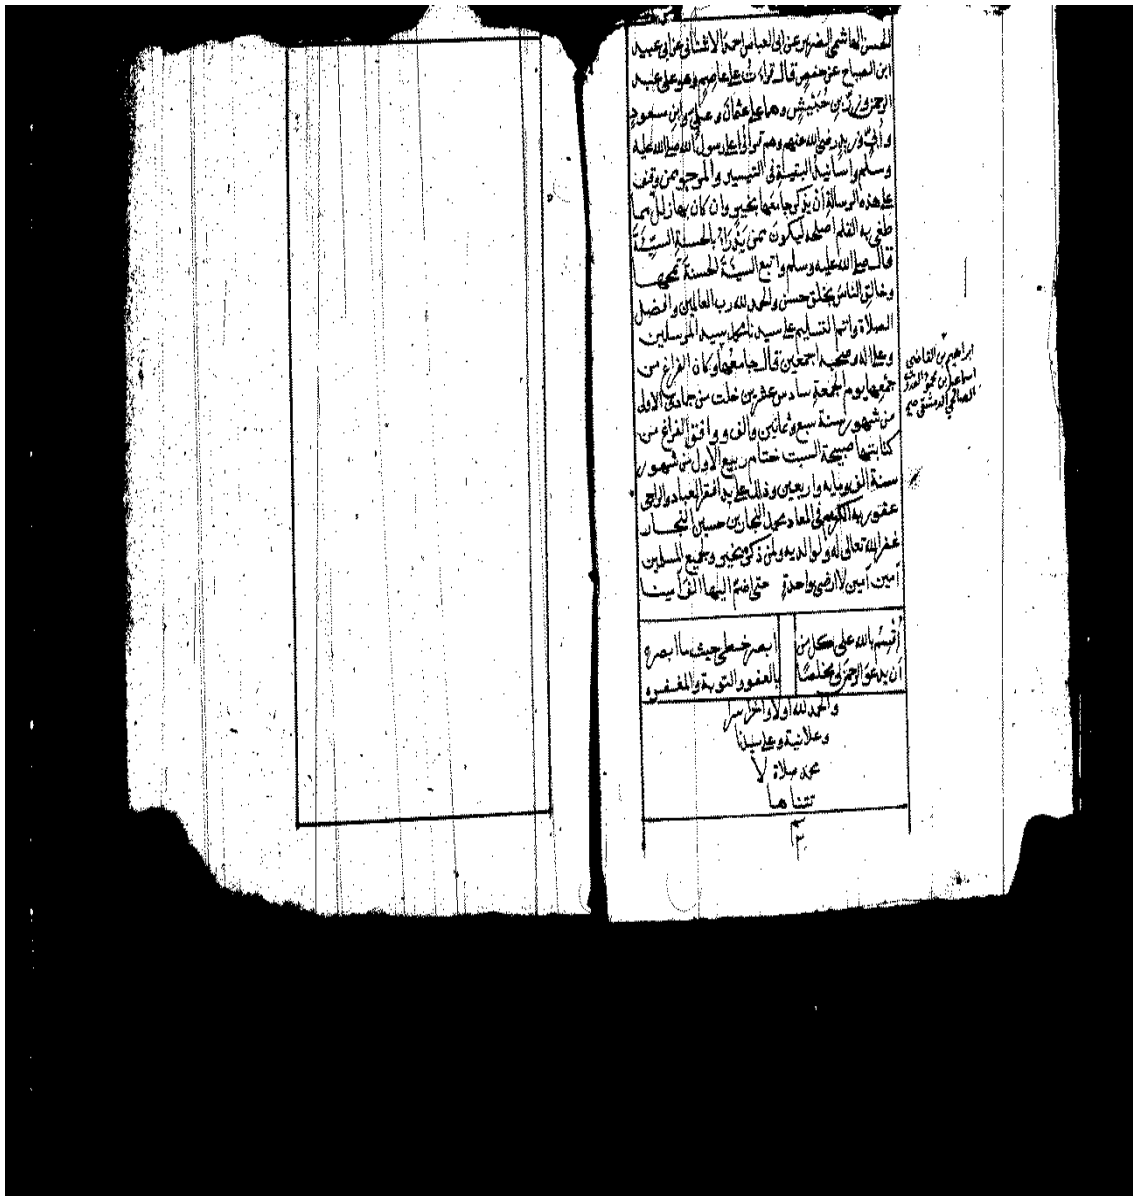 الحسن الهاشمي الضرير عن ابي العباس احمد الاشناني عن ابي عبيد
ابن الصباح عن حفص قال قرات على عاصم وهو على عبد
الرحمن وزر بن حبيش وهما على عثمان وعلي وابن سعود
وأبي وزيد رضي الله عنهم وهم قرأوا على رسول الله صلى الله عليه
وسلم واسانيد البقية في التيسير والمرجو ممن وقف
على هذه الرسالة أن يذكر جامعها بخير وان كان بها زلل مما
طغى به القلم اصلحه ليكون ممن يدرأ بالحسنة السيئة
قال صلى الله عليه وسلم واتبع السيئة الحسنة تمحها
وخالق الناس بخلق حسن والحمد لله رب العالمين وافضل
الصلاة واتم التسليم على سيدنا محمد سيد المرسلين
وعلى اله وصحبه اجمعين قال جامعها وكان الفراغ من
جمعها يوم الجمعة سادس عشرين خلت من جمادى الاولى
من شهور سنة سبع وثمانين والف ووافق الفراغ من
كتابتها صبيحة السبت ختام ربيع الاول من شهور
سنة الف ومايه واربعين وذلك على يد افقر العباد والراجي
عفو ربه الكريم في المعاد محمد النجار بن حسين النجار
غفر الله تعالى له ولوالديه ولمن ذكره بخير ولجميع المسلمين
آمين آمين لا ارضى بواحدة حتى اضم اليها الف امينا
أقسم بالله على كل من ابصر خطي حيث ما ابصره
أن يدعو الرحمن لي مخلصا بالعفو والتوبة والمغفره
والحمد لله اولا واخرا سرا
وعلانية وعلى سيدنا
محمد صلاة لا
تتناها
ابراهيم بن القاضي
اسماعيل بن محمود
الصالحي الدمشقي